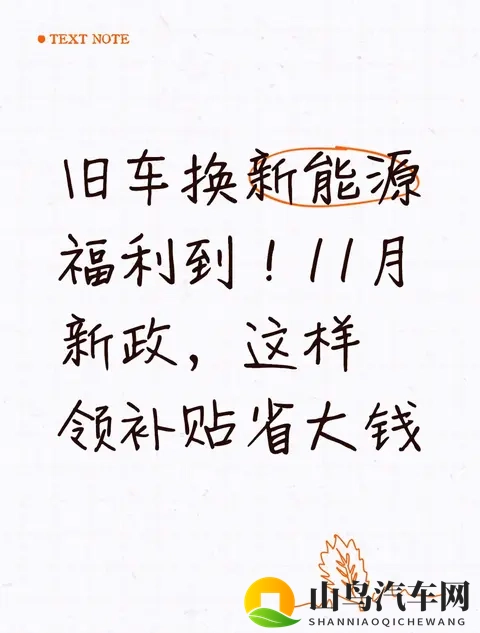 TEXT NOTE
旧车换新能源
福利到！11月
新政，这样
领补贴省大钱
山鸟汽车网
SHANNIAOQICHEWANG